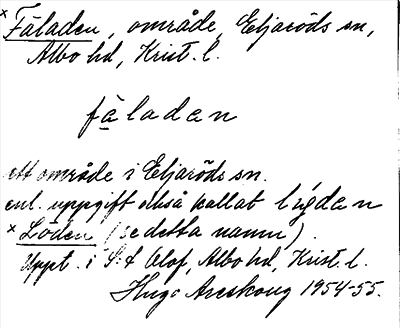 × Fäladen, område, Eljaröds sn,
Albo hd, Krist. l.
fäladen
ett område i Eljaröds sn.
enl. uppgift också kallat
× Löden (se detta namn).
Uppt. i S:t Olof, Albo hd, Krist. l.
Hugo Areskoug 1954-55.